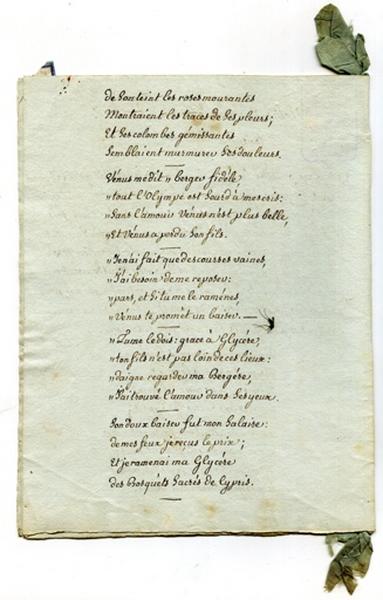 de son teint les roses mourantes
Montraient les traces de ses pleurs;
Et ses colombes gémissantes
Semblaient murmurer ses douleurs.
Vénus me dit " berger fidèle
" tout l'Olympe est sourd à mes cris:
" Sans l'amour Vénus n'est plus belle,
" Et Vénus a perdu son fils.
" Je n'ai fait que des courses vaines,
" J'ai besoin de me reposer:
" pars, et si tu me le ramènes,
" Vénus te promet un baiser. —
" Tu me le dois: grace à Glycère,
" ton fils n'est pas loin de ces lieux:
" daigne regarder ma Bergère,
" J'ai trouvé l'amour dans ses yeux.
Son doux baiser fut mon salaire:
de mes feux je reçus le prix;
Et je ramenai ma Glycère
des Bosquets sacrés de Cypris.